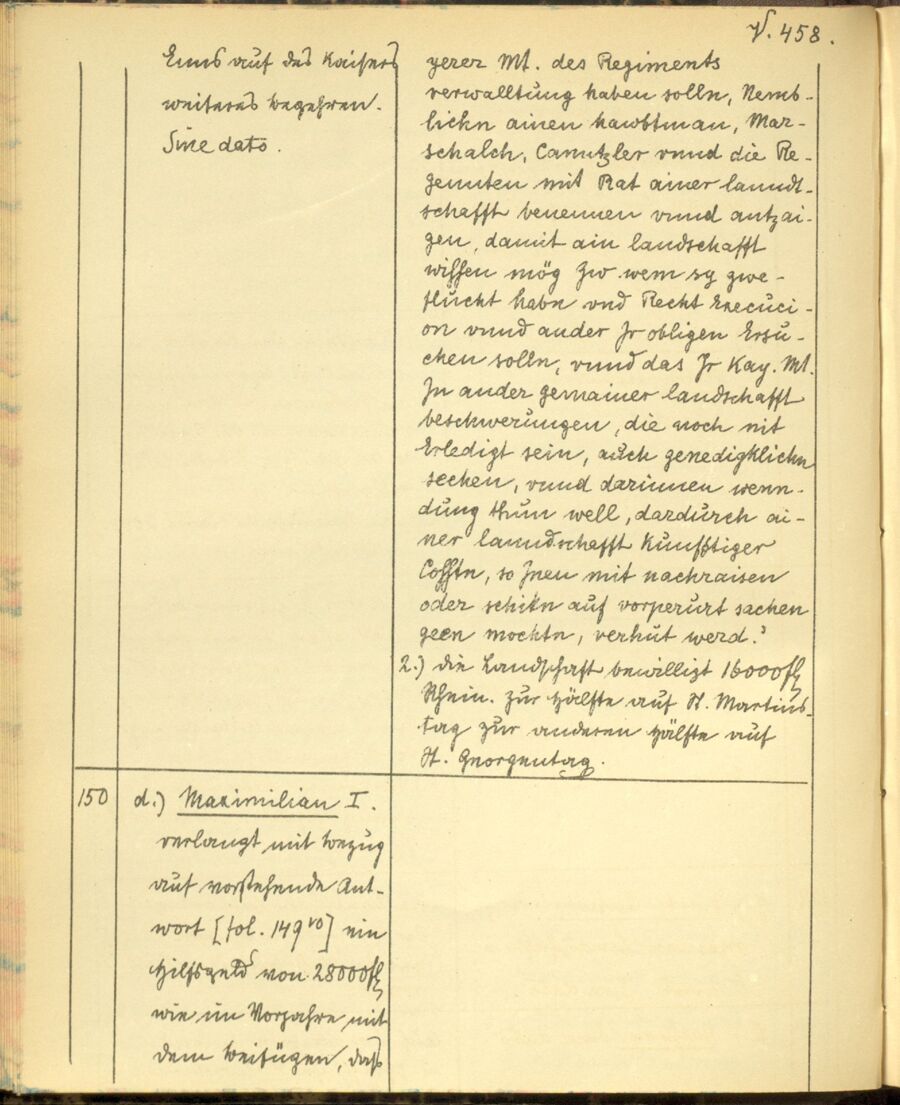 V. 458.
Enns auf des Kaisers
weiteres begehren.
Sine dato.
yerer Mt. des Regiments
verwalltung haben solln, Nemb-
lichn ainen hawbtman, Mar-
schalch, Canntzler vnnd die Re-
gennten mit Rat ainer lanndt-
schafft benennen vnnd antzai-
gen, damit ain landschafft
wissen mög Zw wem sy zwe-
flucht habn vnd Recht Execuci-
on vnnd ander Jr obligen Ersu-
chen solln, vnnd das Jr Kay. Mt.
Jn ander gemainer landschafft
beschwerungen, die noch nit
Erledigt sein, auch genedigklichn
sechen, vnnd darinnen wenn-
dung thun well, dardurch ai-
ner lanndschafft Kunfftiger
Cosstn, so Jnen mit nachraisen
oder schikn auf vorperurt sachen
geen mochtn, verhut werd.'
2.) die Landschaft bewilligt 16000 fl
Rhein. zur Hälfte auf St. Martins-
tag zur anderen Hälfte auf
St. Georgentag.
150
d.) Maximilian I.
verlangt mit bezug
auf vorstehende Ant-
wort [fol. 149 vo] ein
Hilfsgeld von 28000 fl
wie im Vorjahre mit
dem beifügen, daß